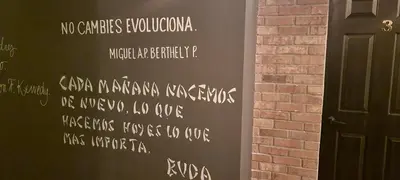 NO CAMBIES EVOLUCIONA.
MIGUEL A.P. BERTHELY P.
CADA MAÑANA NACEMOS
DE NUEVO. LO QUE
HACEMOS HOY ES LO QUE
MAS IMPORTA.
BUDA
F. Kennedy
3